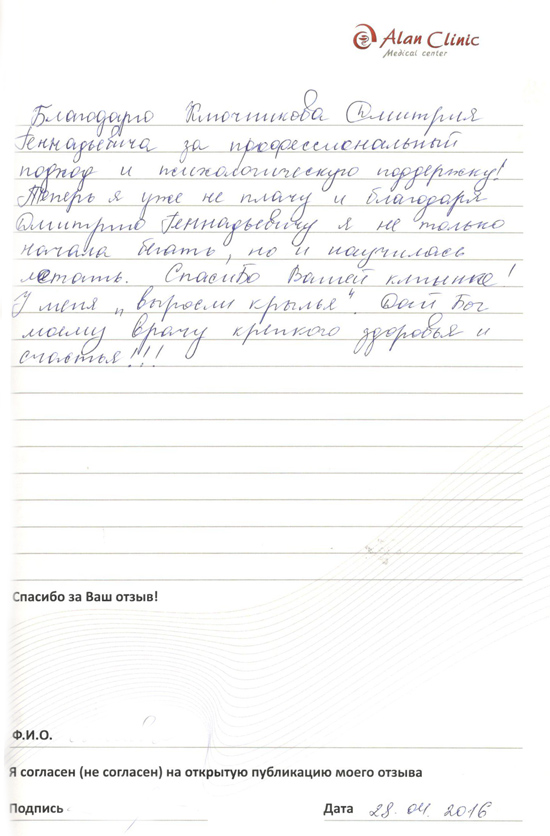 Alan Clinic
Medical center
Благодарю Ключникова Дмитрия
Геннадьевича за профессиональный
подход и психологическую поддержку!
Теперь я уже не плачу и благодаря
Дмитрию Геннадьевичу я не только
начала бегать, но и научилась
летать. Спасибо Вашей клинике!
У меня „выросли крылья". Дай Бог
моему врачу крепкого здоровья и
счастья!!!
Спасибо за Ваш отзыв!
Ф.И.О.
Я согласен (не согласен) на открытую публикацию моего отзыва
Подпись
Дата 28.04.2016